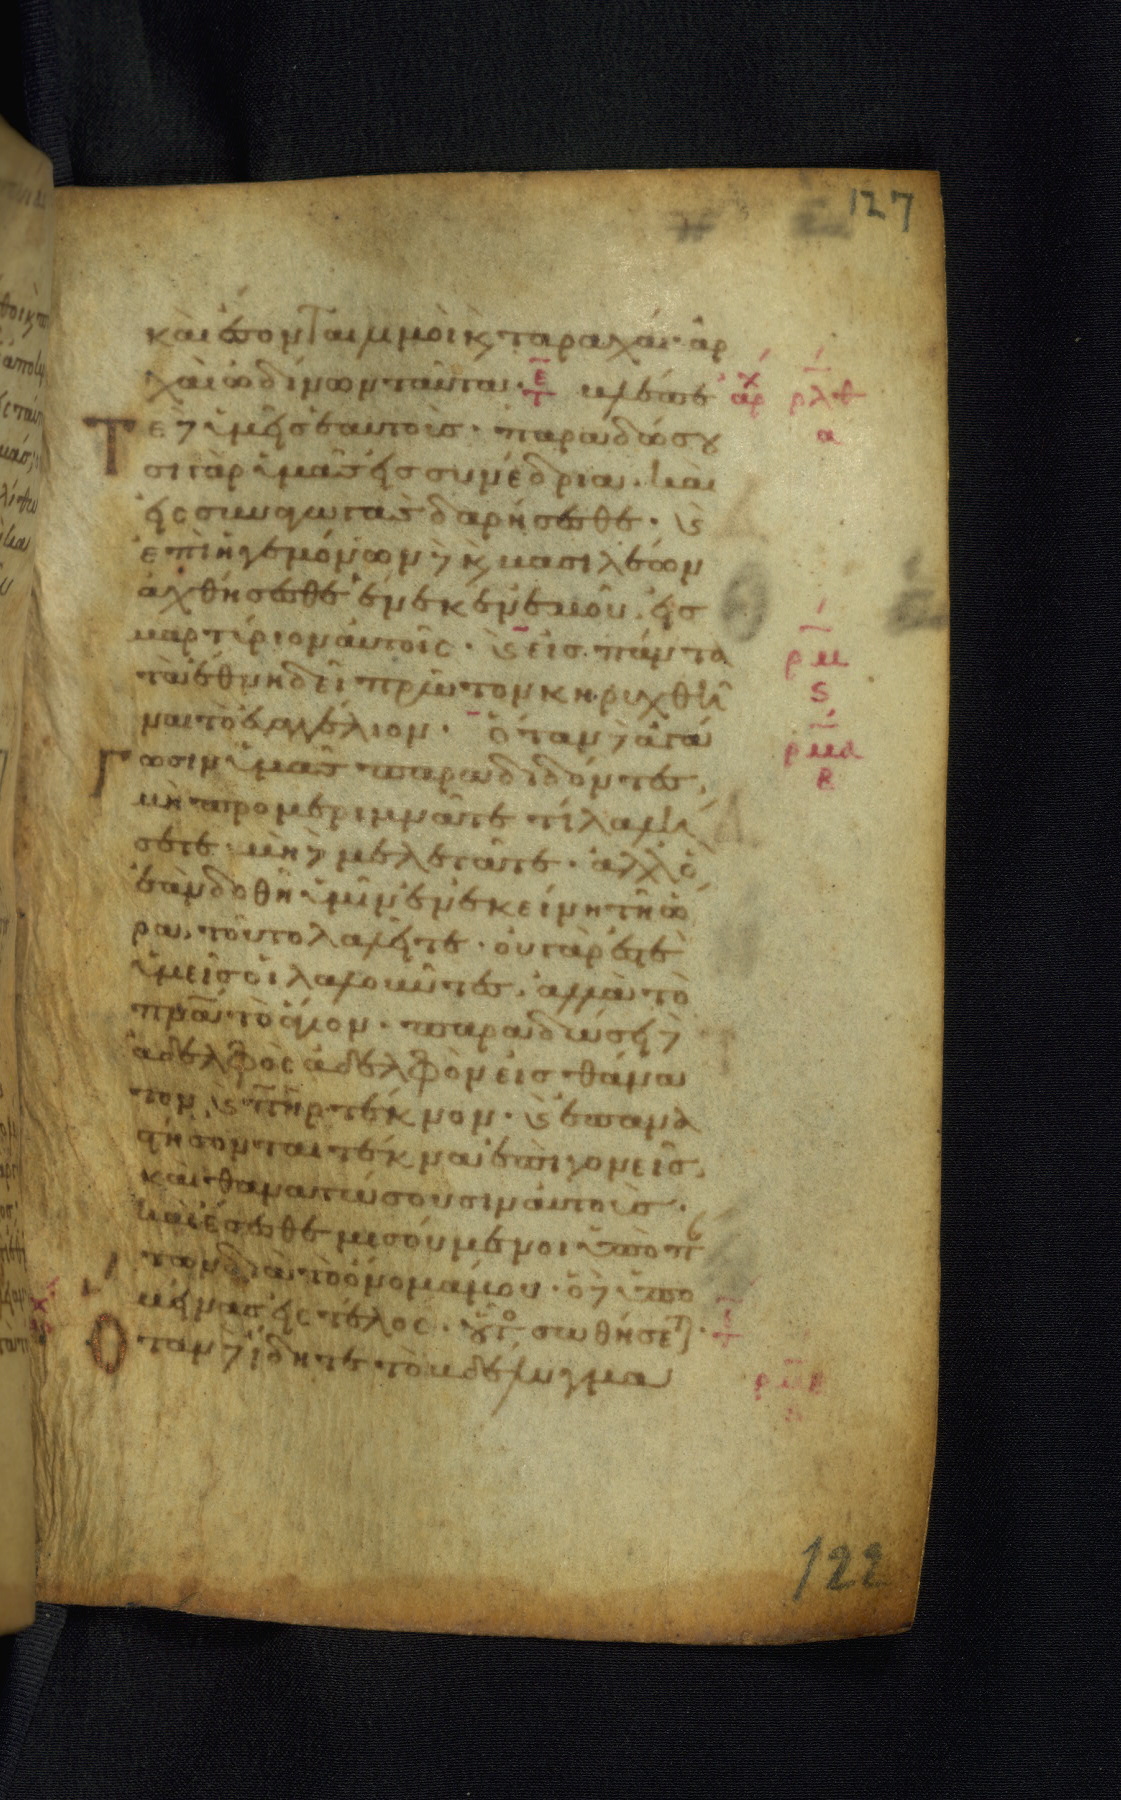 127
και έσονται λιμοὶ κ ταραχάι· ἀρ
χὰι ὠδίνων ταῦται· βλέπε
Τε δὲ ὑμεῖς ἑαυτοὺς· παραδώσου
σι γὰρ ὑμᾶς εἰς συνέδρια· καὶ
εἰς συναγωγὰς δαρήσεσθε· κ
ἐπὶ ἡγεμόνων δὲ κ βασιλέων
ἀχθήσεσθε ἕνεκεν ἐμοῦ· εἰς
μαρτύριον ἀυτοῖς· κ εἰς πάντα
τὰ ἔθνη δεῖ πρῶτον κηρυχθῆ
ναι τὸ εὐαγγέλιον· ὅταν δὲ ἀγά
Γωσιν ὑμᾶς παραδιδόντες,
μὴ προμεριμνᾶτε τί λαλή
σετε· μὴ δὲ μελετᾶτε· ἀλλ' ὃ
ἐὰν δοθῆ ὑμῖν ἐν ἐκείνη τῆ ὥ
ρα, τοῦτο λαλεῖτε· οὐ γὰρ ἐστὲ
ὑμεῖς οἱ λαλοῦντες, ἀλλὰ τὸ
πνα τὸ ἅγιον· παραδώσει δὲ
ἀδελφὸς ἀδελφὸν εἰς θάνα
τον, κ πηρ τέκνον· κ ἐπανα
στήσονται τέκνα ἐπὶ γονεῖς,
και θανατώσουσιν ἀυτοὺς·
καὶ ἔσεσθε μισούμενοι ὑπὸ πάν
των διὰ τὸ ὄνομά μου· ὁ δὲ ὑπο
μείνας εἰς τέλος· οὗτος σωθήσεται·
Οταν δὲ ἴδητε τὸ βδέλυγμα
ἀρχ
ρλθ
α
ρμ
ς
ρμα
β
ρμβ
122